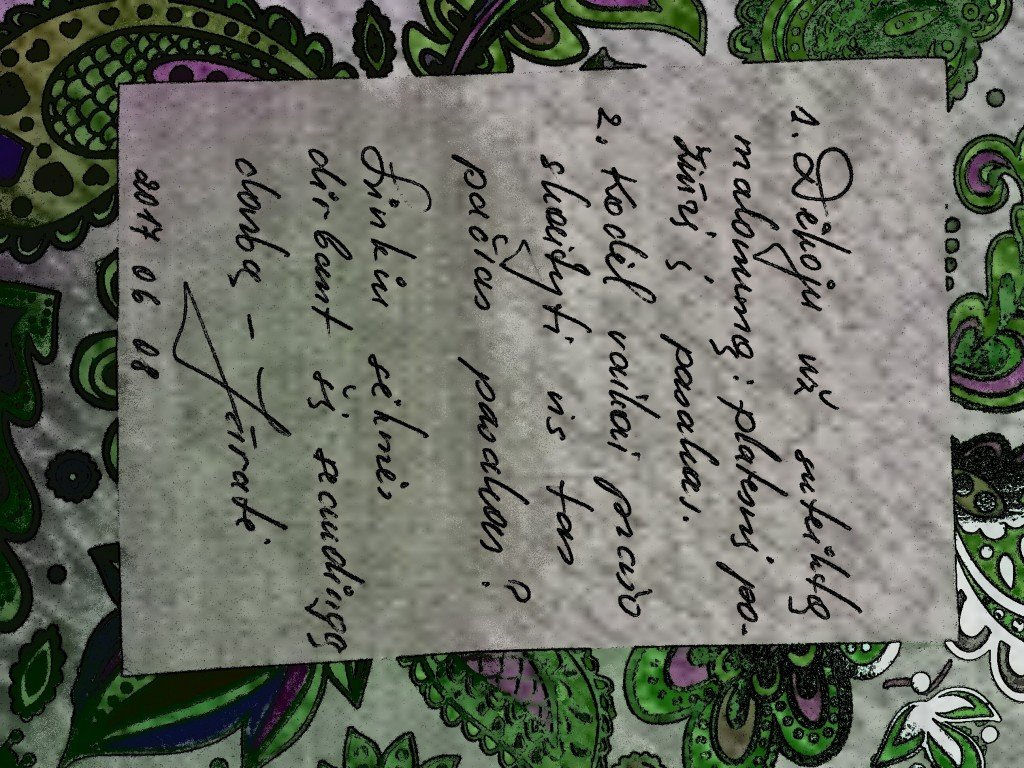 1. Dėkoju už suteiktą
malonumą: platesnį po-
žiūrį į pasakas.
2. Kodėl vaikai prašo
skaityti vis tas
pačias pasakas?
Linkiu sėkmės
dirbant šį prasmingą
darbą – Jūratė
2017 06 08